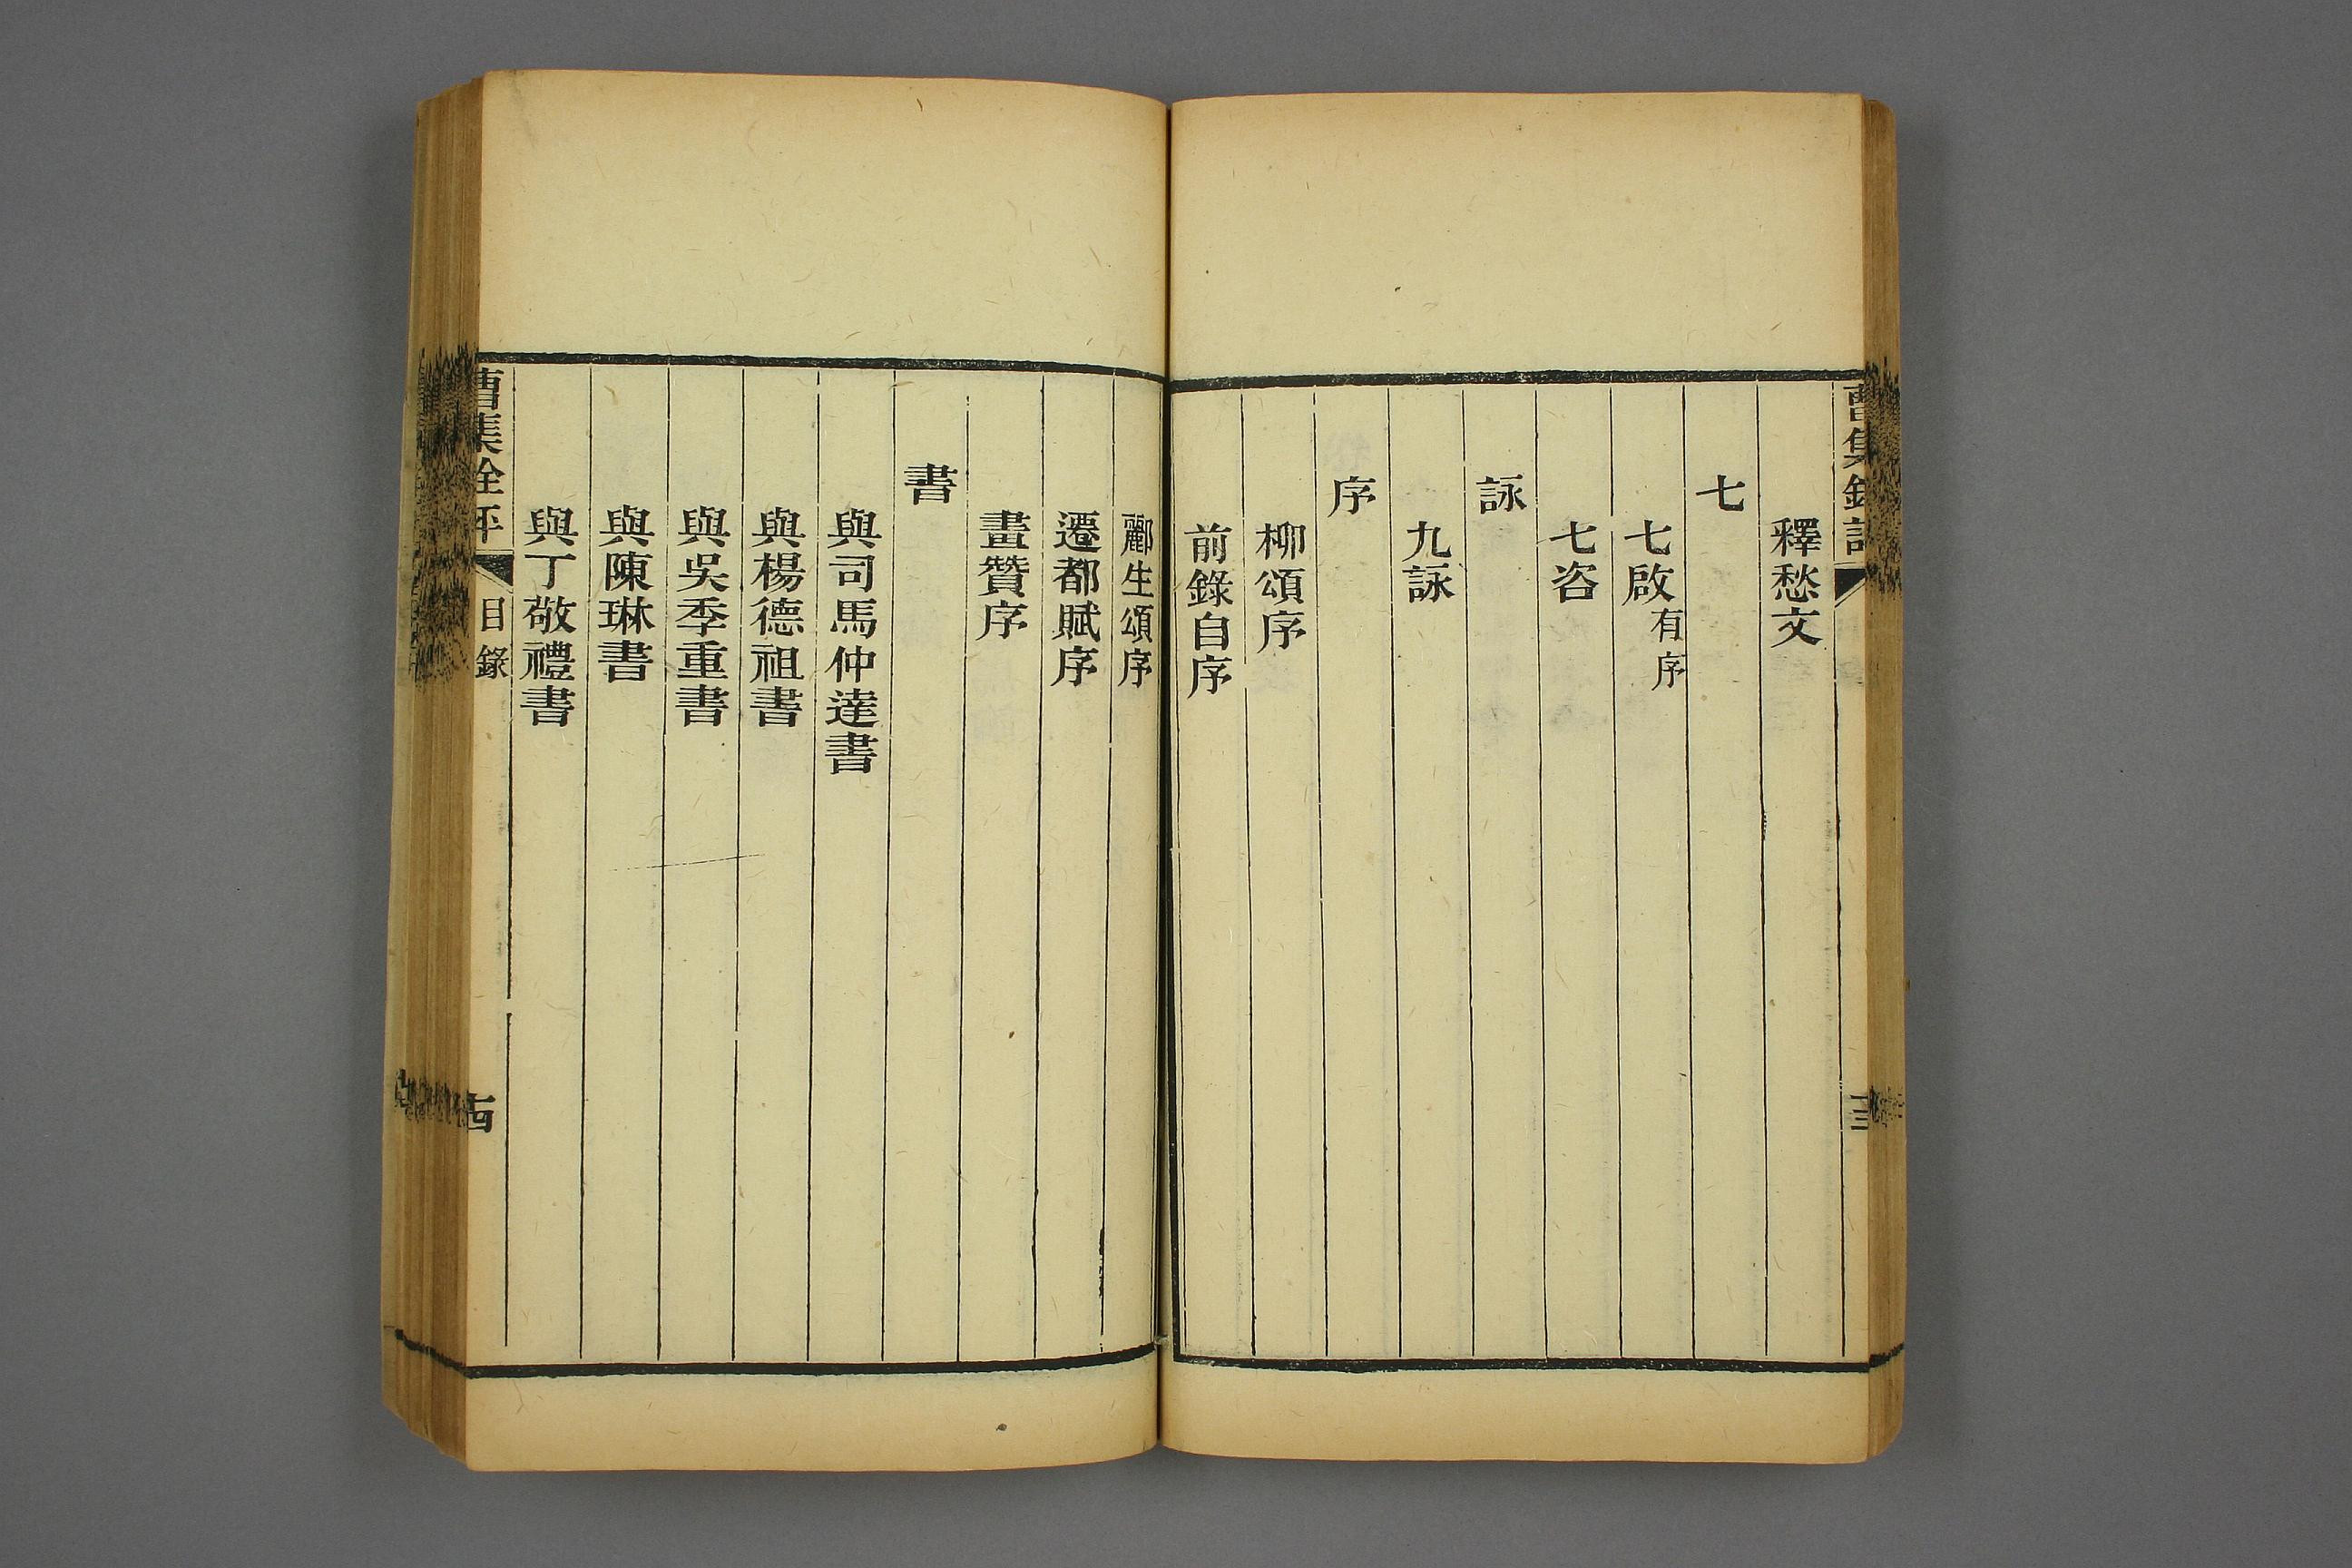 釋愁文
七
七啟有序
七咨
詠
九詠
序
柳頌序
前錄自序
酈生頌序
遷都賦序
畫贊序
書
與司馬仲達書
與楊德祖書
與吳季重書
與陳琳書
與丁敬禮書
曹集銓評 目錄 十四